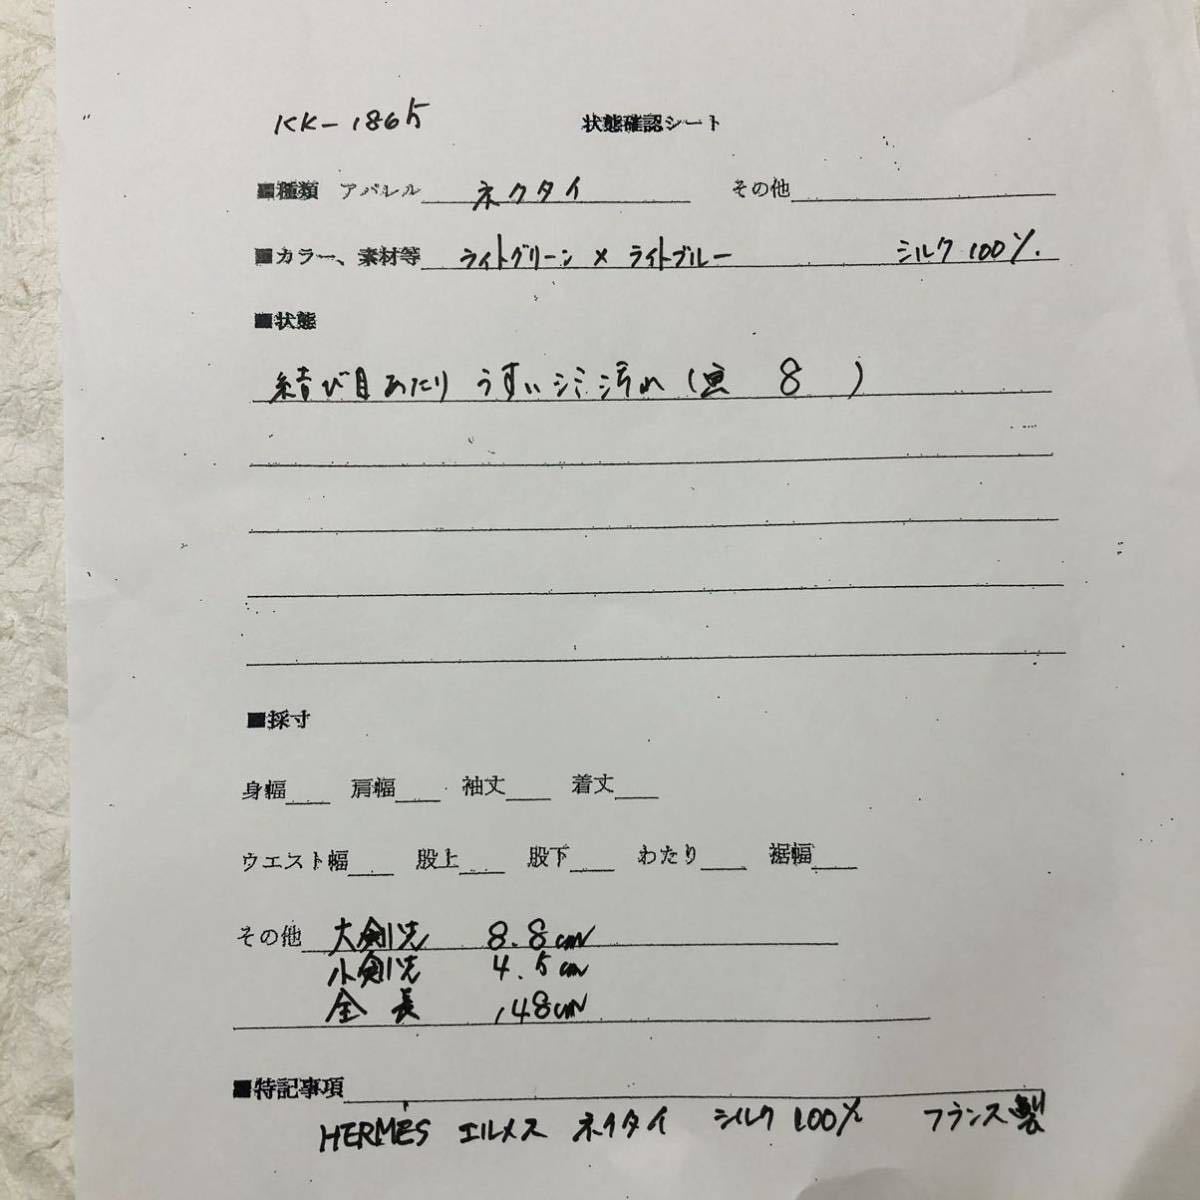 KK-1865 状態確認シート
■種類 アパレル ネクタイ その他
■カラー、素材等 ライトグリーン × ライトブルー シルク 100%.
■状態
結び目あたり うすいシミ汚れ ( 8 )
■採寸
身幅 肩幅 袖丈 着丈
ウエスト幅 股上 股下 わたり 裾幅
その他 大剣先 8.8cm
小剣先 4.5cm
全長 148cm
■特記事項
HERMÈS エルメス ネクタイ シルク 100% フランス製